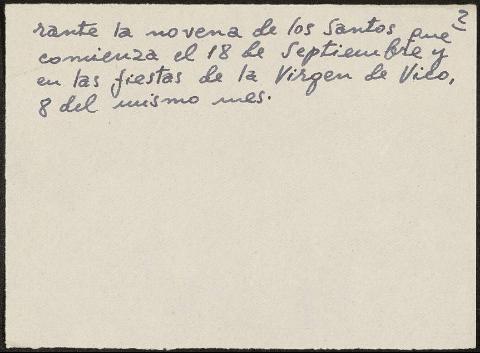 2
rante la novena de los Santos que
comienza el 18 de Septiembre y
en las fiestas de la Virgen de Vico,
8 del mismo mes.